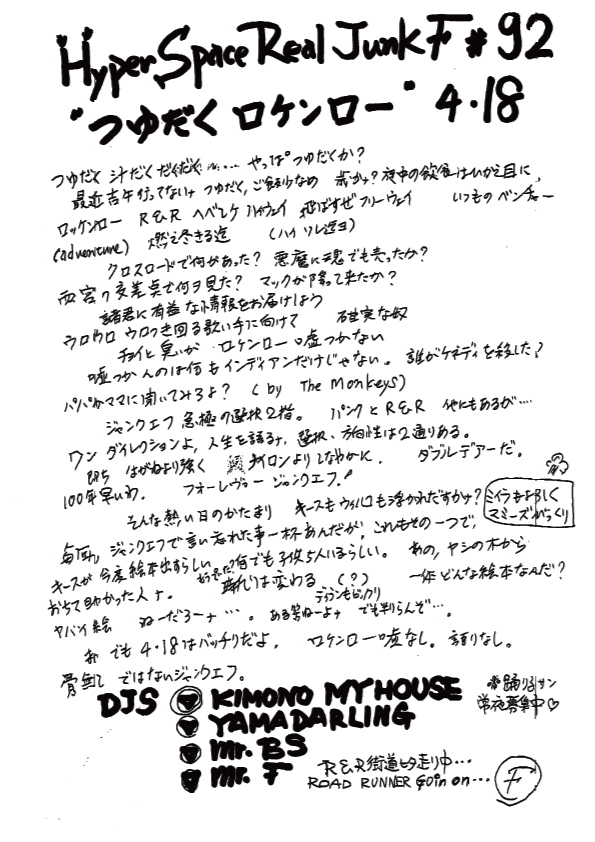 Hyper Space Real Junk F #92
"つゆだく ロケンロー" 4・18
つゆだく 汁だく だくだく …… やっぱつゆだくか?
最近吉牛行ってないナ つゆだく,ご飯少なめ 夜中の飲食はひかえ目に,
ロッケンロー R&R ヘベレケ ハイウェイ 飛ばすぜフリーウェイ いつものベンチャー
(adventure) 燃え尽きる迄 (ハイ ソレ迄ヨ)
クロスロードで何があった? 悪魔に魂でも売ったか?
西宮の交差点で何ヲ見た? マックが降って来たか?
諸君に有益な情報をお届けしよう
ウロウロ ウロつき回る歌い手に向けて 確実な奴
チョイと臭いが ロケンローは嘘つかない
嘘つかんのは何もインディアンだけじゃない。 誰がケネディを殺した?
パパかママに聞いてみろよ? (by The Monkeys)
ジャンクエフ 急極の選択2指。 パンクとR&R 他にもあるが…
ワン ダイレクションよ,人生を語るナ,選択、方向性は2通りある。
即ち はがねより強く ナイロンよりしなやかに. ダブルデアーだ。
100年早いわ. フォーレヴァー ジャンクエフ!
そんな熱い日のかたまり キースもウィルコも浮かれだすかナ?
ミイラもよろしく
マミーズがっくり
毎回,ジャンクエフで言い忘れた事一杯あんだが,これもその一つで,
キースが今度絵本出すらしい 何でも子供5人いるらしい。 あの,ヤシの木から
おちて助かった人ナ. 時代は変わる (?) 一体どんな絵本なんだ?
ディランもビックリ
ヤバイ絵 ねーだろーナ…。 ある筈ねーよナ でも判らんぞ…。
お でも 4・18はバッチリだよ, ロケンロー嘘なし。 語りなし。
骨無し ではないジャンクエフ。
DJS KIMONO MY HOUSE
YAMADARLING
Mr. BS
Mr. F
踊りるサン
常夜募集中♡
R&R街道ひた走り中…
ROAD RUNNER Goin on…
F